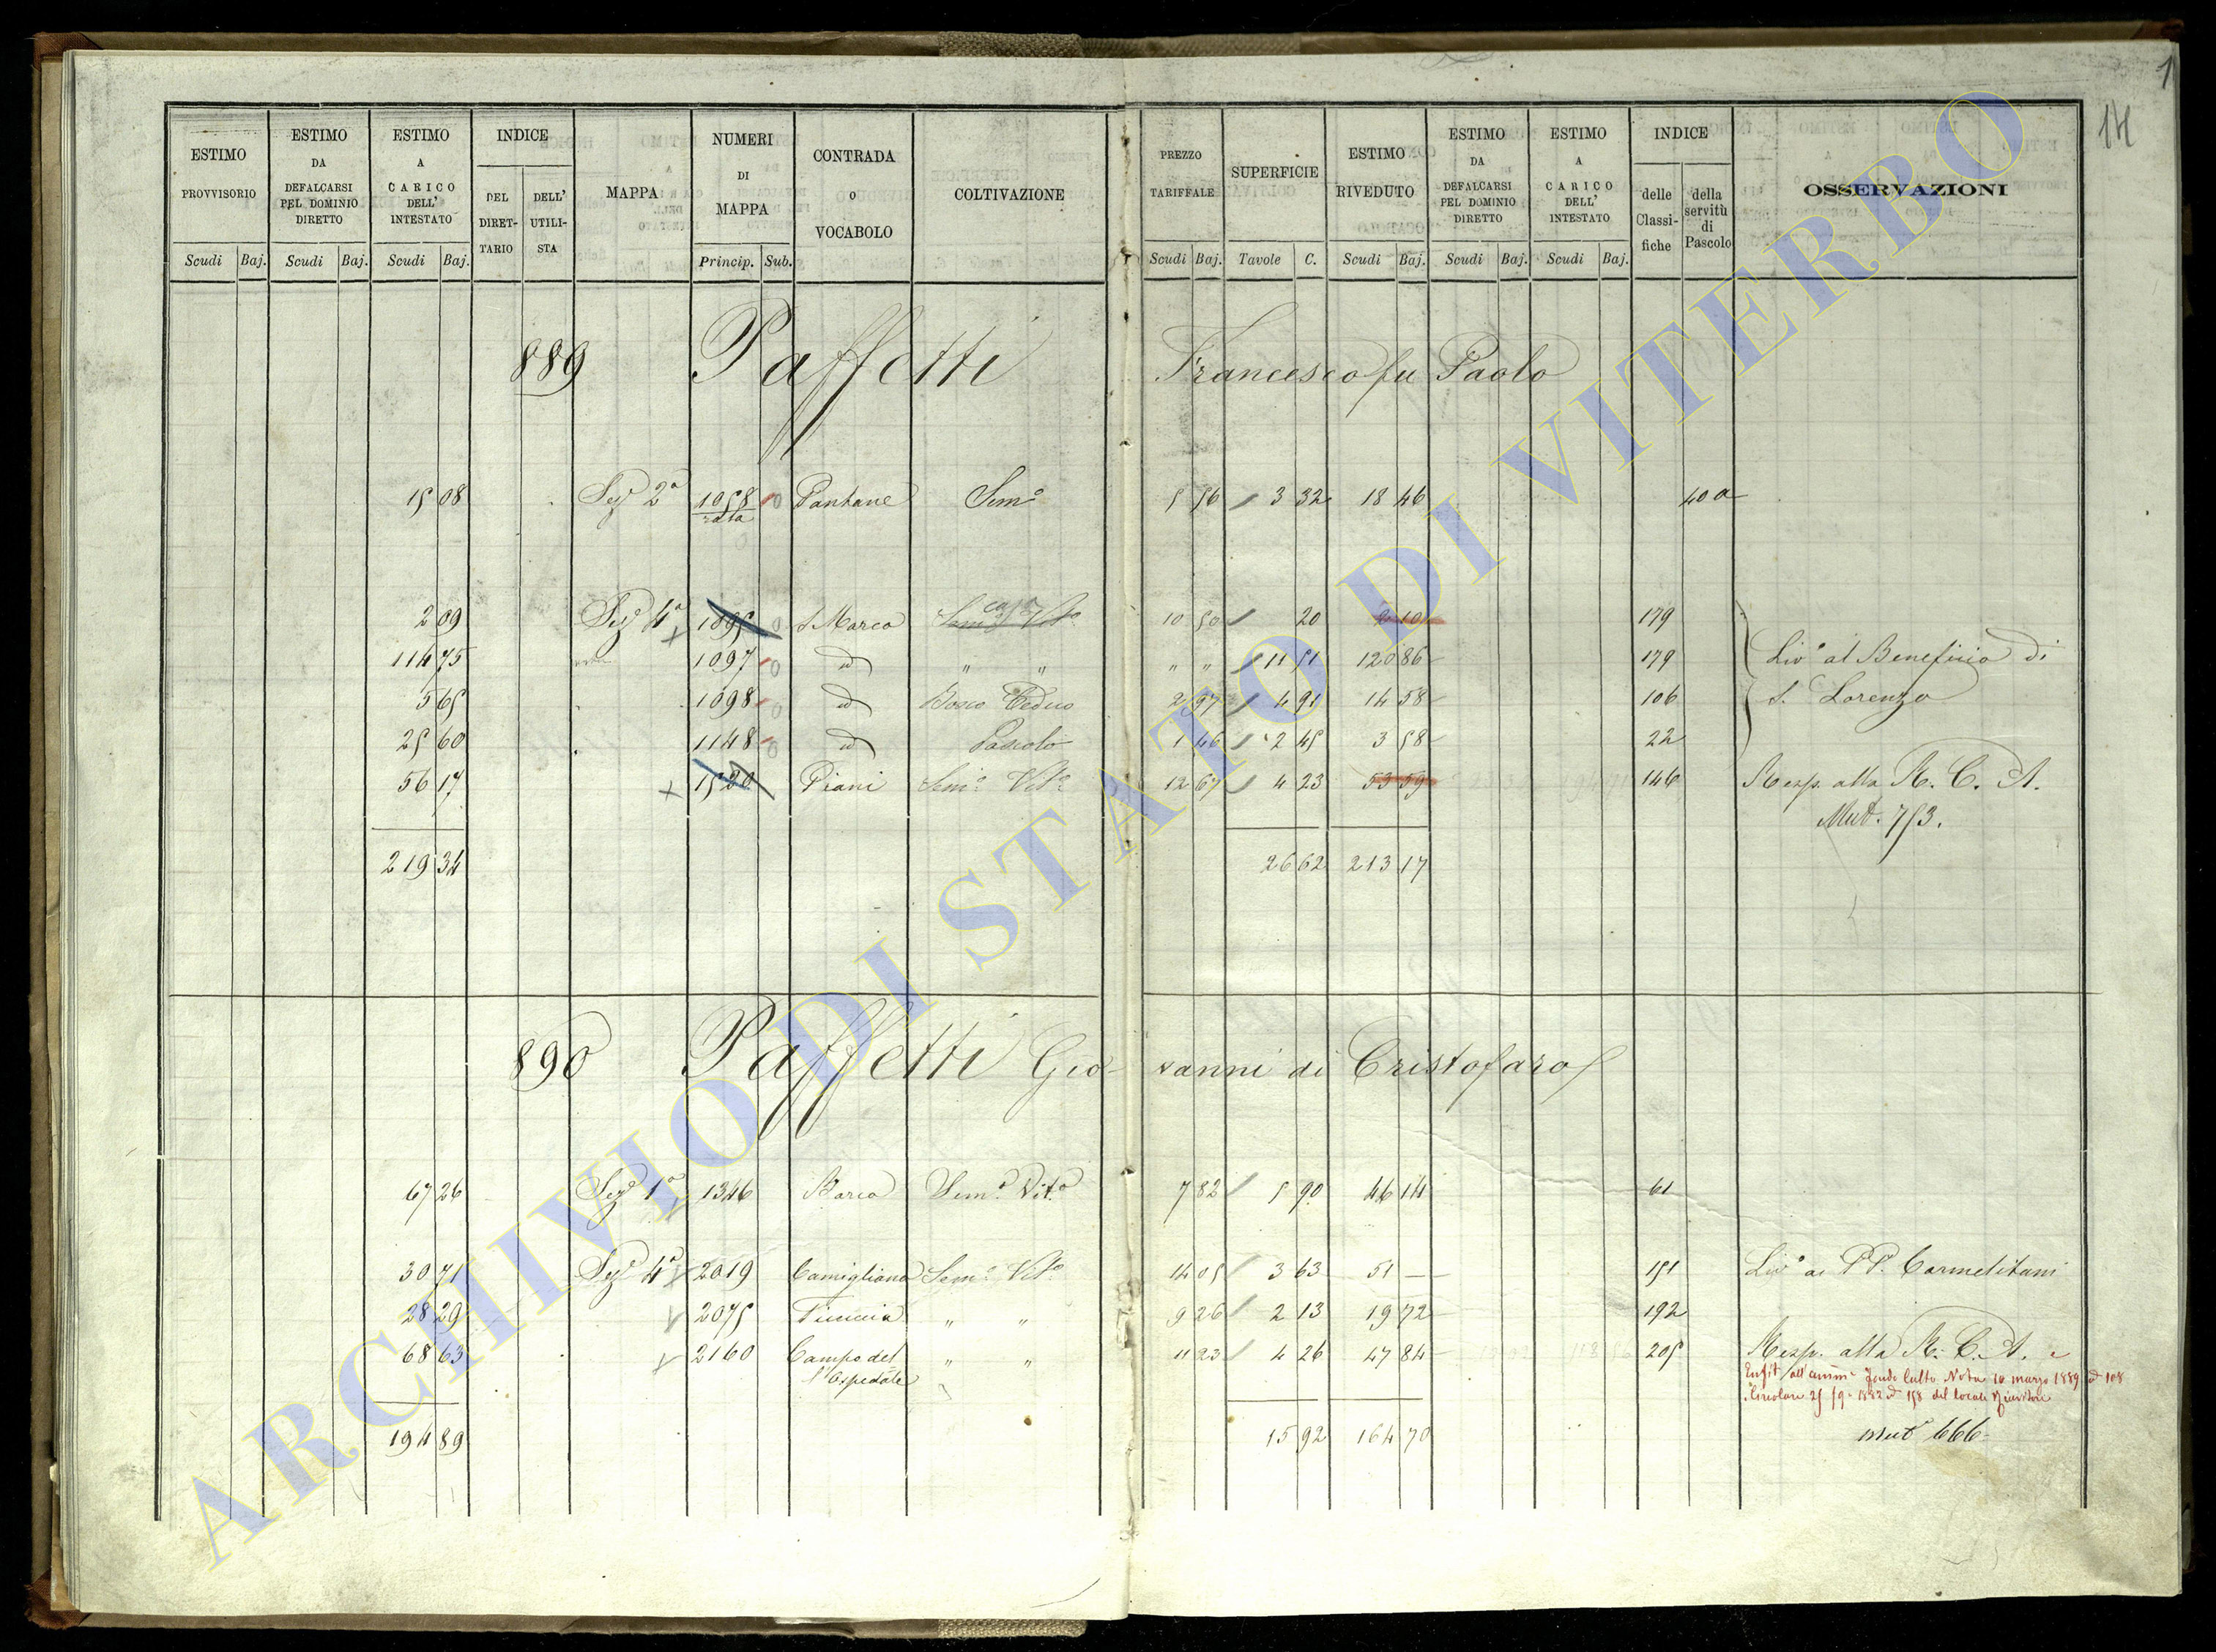 1
14
ESTIMO PROVVISORIO Scudi Baj.
ESTIMO DA DEFALCARSI PEL DOMINIO DIRETTO Scudi Baj.
ESTIMO A CARICO DELL' INTESTATO Scudi Baj.
INDICE DEL DIRET-TARIO DELL' UTILI-STA
MAPPA
NUMERI DI MAPPA Princip. Sub.
CONTRADA O VOCABOLO
COLTIVAZIONE
PREZZO TARIFFALE Scudi Baj.
SUPERFICIE Tavole C.
ESTIMO RIVEDUTO Scudi Baj.
ESTIMO DA DEFALCARSI PEL DOMINIO DIRETTO Scudi Baj.
ESTIMO A CARICO DELL' INTESTATO Scudi Baj.
INDICE delle Classi-fiche della servitù di Pascolo
OSSERVAZIONI
889 Paffetti Francesco fu Paolo
15 08 Sez. 2a 1058 rata Pantane Sem.o 5 56 3 32 18 46 40 a
2 09 Sez. 4a 1095 S. Marco casa Sem.o Vit.o 10 50 20 2 10 179
114 75 1097 id " " " " 11 51 120 86 179 Liv.o al Beneficio di
5 65 1098 id Bosco Ceduo 2 97 4 91 14 58 106 S. Lorenzo
25 60 1148 id Pascolo 1 46 2 45 3 58 22
56 17 1520 Piani Sem.o Vit.o 12 67 4 23 53 59 146 Resp. alla R. C. A.
Mut. 753.
219 34 26 62 213 17
890 Paffetti Gio-vanni di Cristofaro
67 26 Sez. 1a 1346 Barco Sem.o Vit.o 7 82 5 90 46 14 61
30 71 Sez. 4a 2019 Camigliano Sem.o Vit.o 14 05 3 63 51 — 151 Liv.o ai PP. Carmelitani
28 29 2075 " " 9 26 2 13 19 72 192
68 63 2160 Campo dell'Ospedale " " 11 23 4 26 47 84 205 Resp. alla R. C. A.
Enfit. all'ammin.e fondo Culto Nota 10 marzo 1889 108
Circolare 25 1882 158 del locale
194 89 15 92 164 70 mut 666
ARCHIVIO DI STATO DI VITERBO